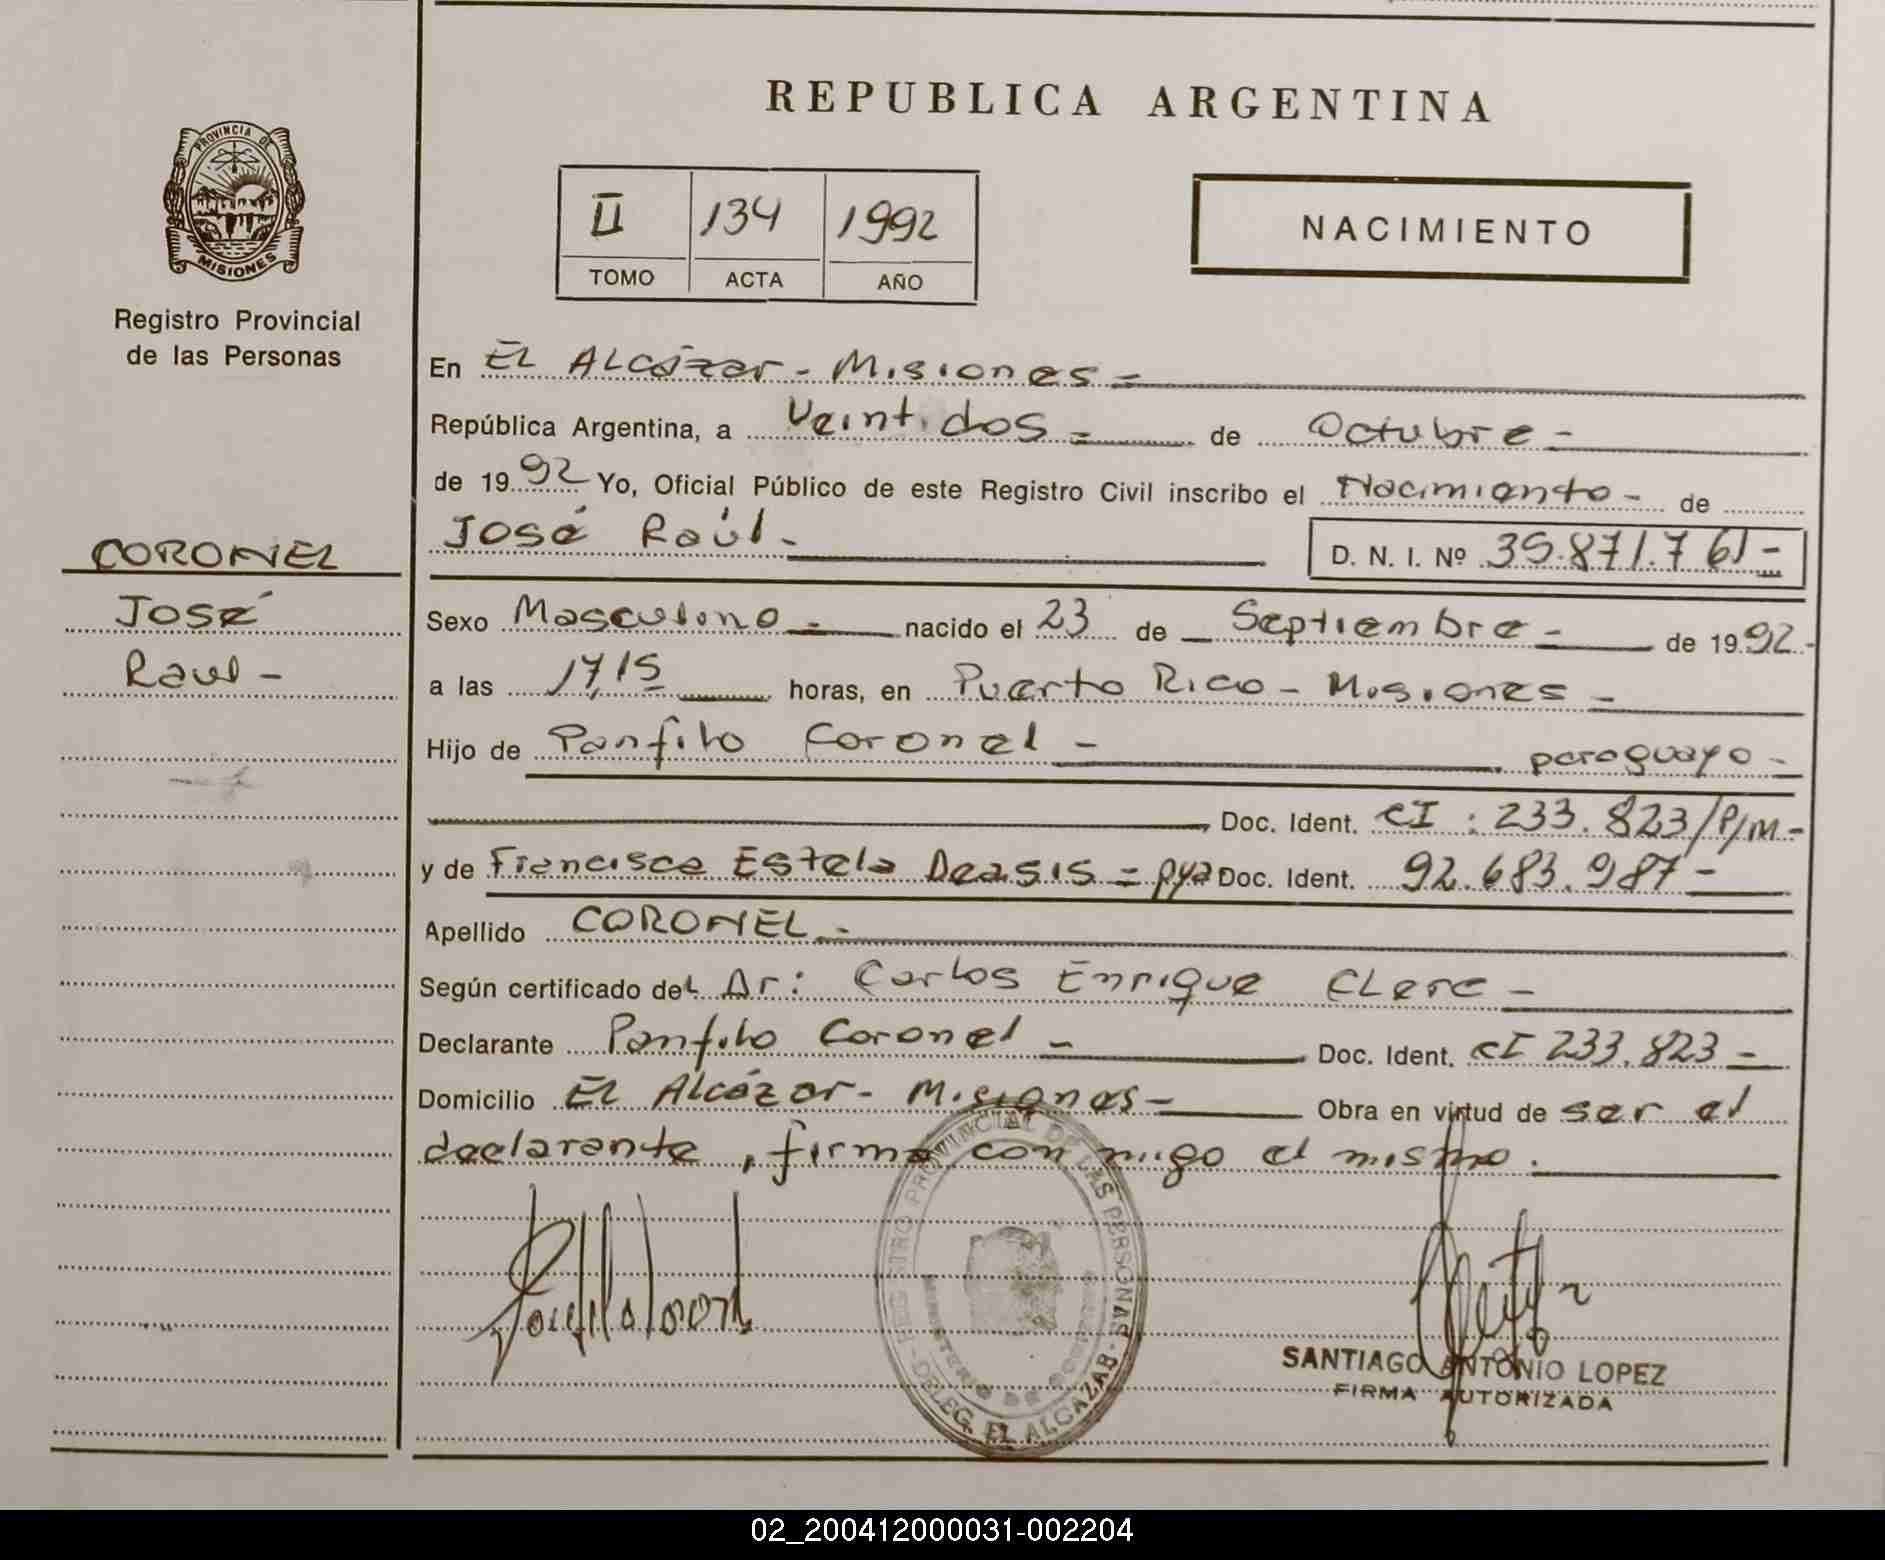 REPUBLICA ARGENTINA
PROVINCIA DE
MISIONES
Registro Provincial
de las Personas
II 134 1992
TOMO ACTA AÑO
NACIMIENTO
En EL ALCázar - Misiones =
República Argentina, a Veintidos = de Octubre -
de 1992 Yo, Oficial Público de este Registro Civil inscribo el Nacimiento - de
José Raúl -
D. N. I. Nº 35.871.761 -
CORONEL
José
Raul -
Sexo Masculino - nacido el 23 de Septiembre - de 1992 -
a las 17,15 horas, en Puerto Rico - Misiones -
Hijo de Panfilo Coronel - paraguayo -
Doc. Ident. CI : 233.823/P/M -
y de Francisca Estela Deasis = pya Doc. Ident. 92.683.987 -
Apellido CORONEL -
Según certificado del Dr: Carlos Enrique CLerc -
Declarante Panfilo Coronel - Doc. Ident. CI 233.823 -
Domicilio EL ALcázar - Misiones - Obra en virtud de ser el
declarante, firma con migo el mismo.
REGISTRO PROVINCIAL DE LAS PERSONAS
MINISTERIO DE GOBIERNO
DELEG. EL ALCAZAR
Panfilo Coronel
SANTIAGO ANTONIO LOPEZ
FIRMA AUTORIZADA
02_200412000031-002204